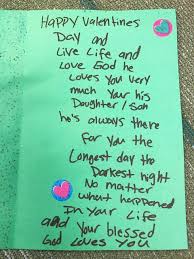 Happy Valentines
Day and
Live Life and
Love God he
Loves You very
much Your his
Daughter / Son
he's always there
for you the
Longest day the
Darkest night
No matter
what happened
In Your Life
and your blessed
God Loves You